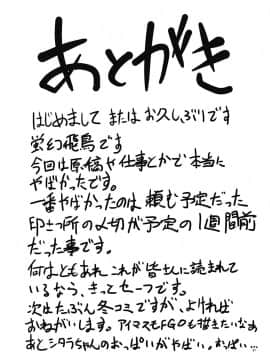 あとがき
はじめまして またはお久しぶりです
蛍幻飛鳥です
今回は原稿や仕事とかで本当に
やばかったです。
一番やばかったのは 頼む予定だった
印さつ所の〆切が予定の1週間前
だった事です。
何はともあれ これが皆さんに読まれて
いるなら、きっとセーフです。
次はたぶん冬コミですが、よければ
おねがいします。アイマスもFGOも描きたいなぁ
あとシタラちゃんのおっぱいがやばい。